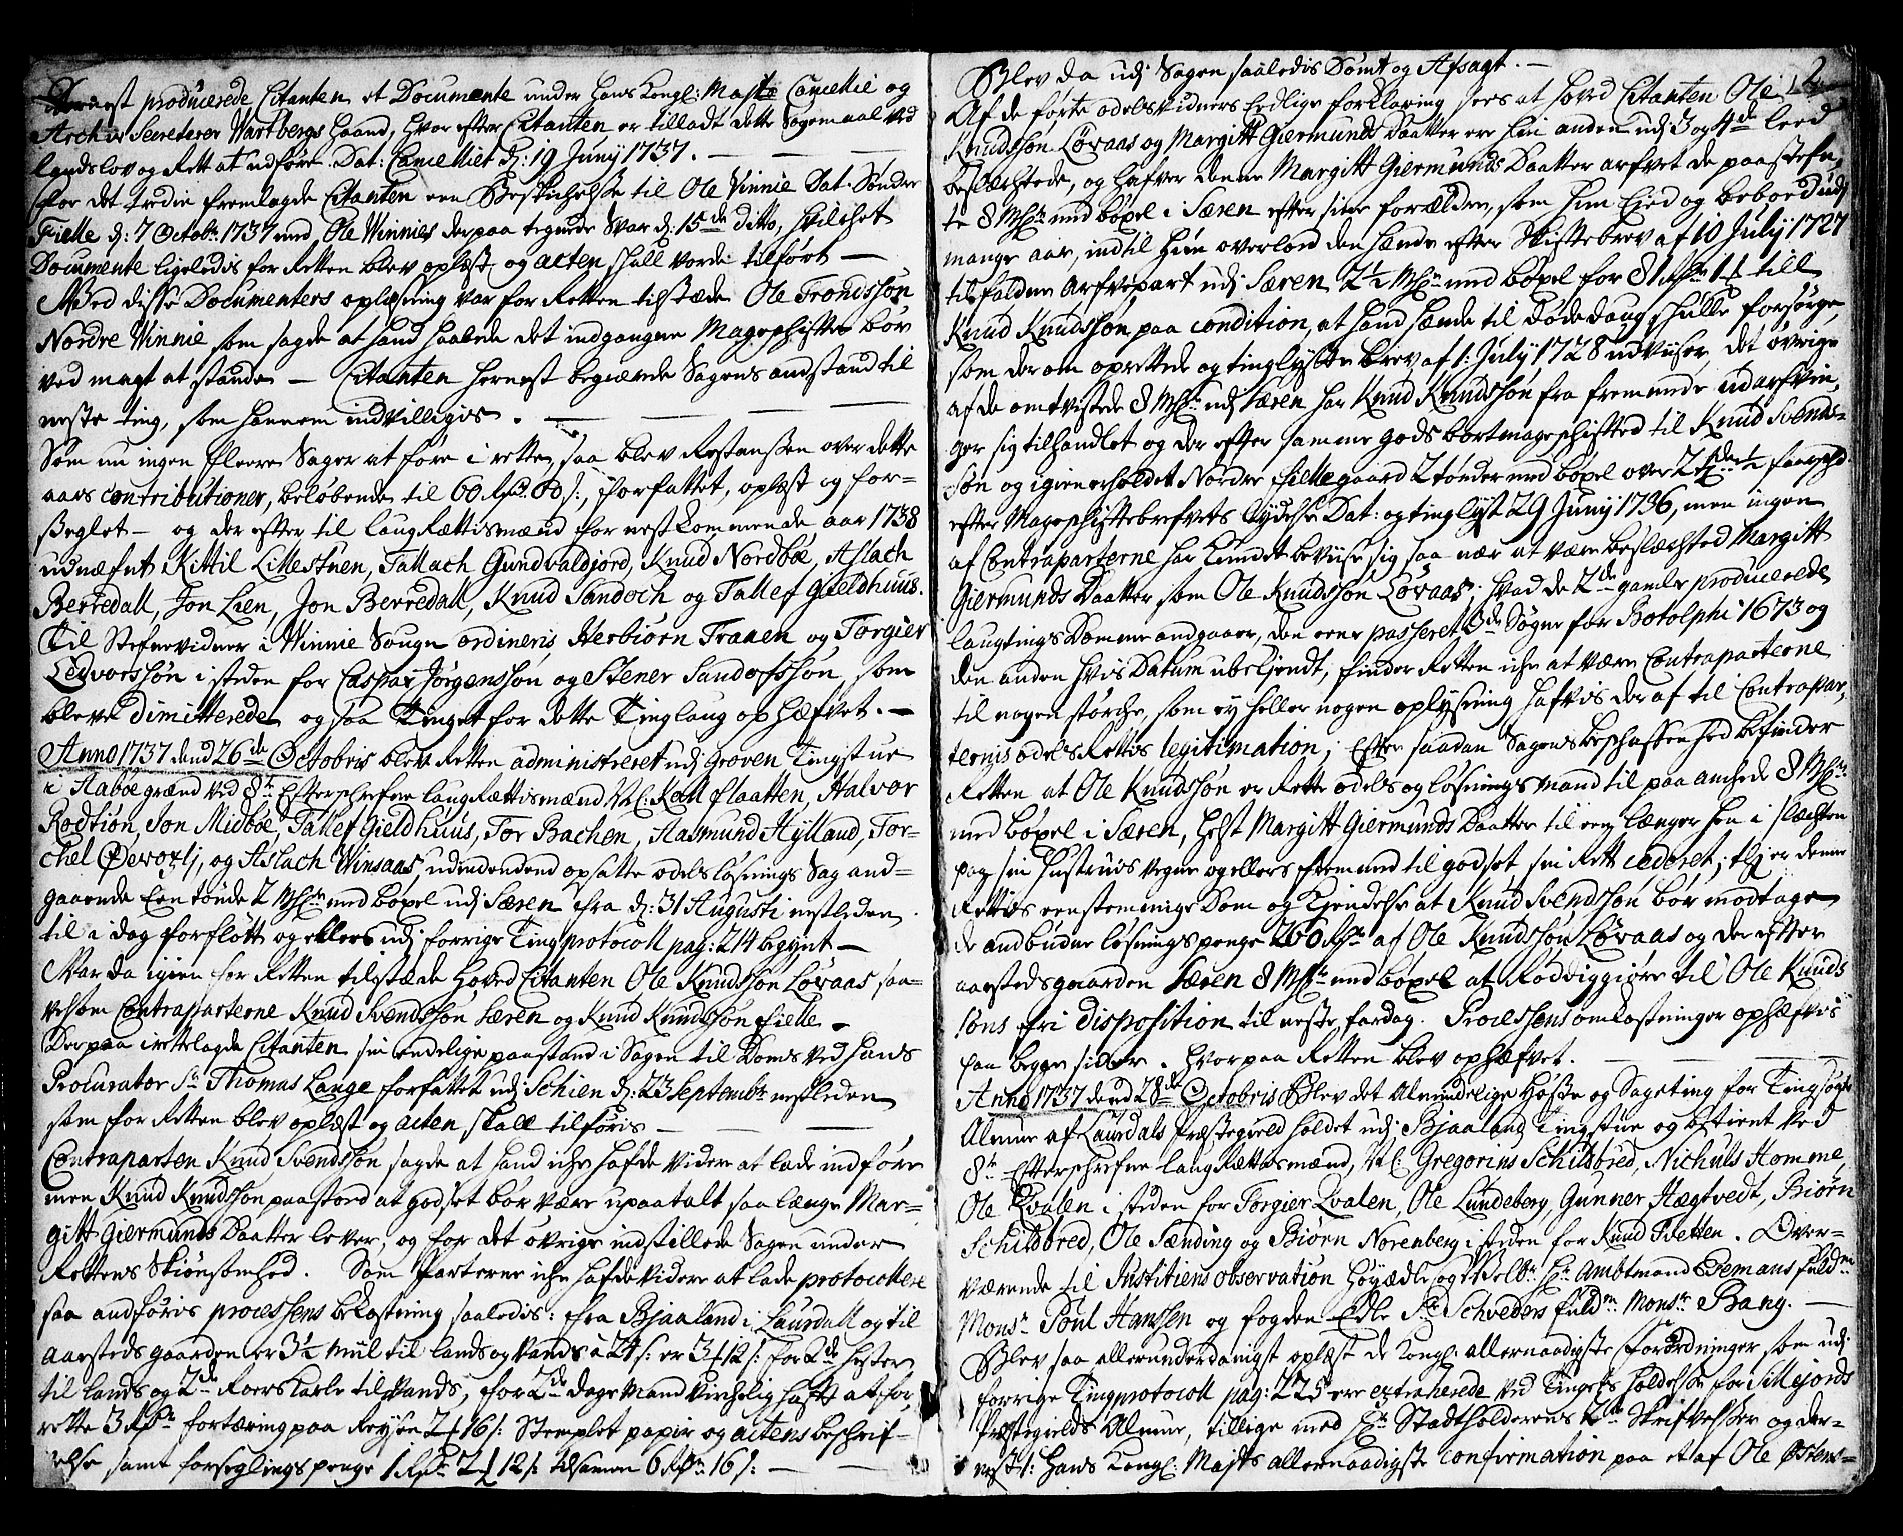 Dernest producerede Citanten et Documente under Hans Kongl: Majts Cancellie og
Archiv Secreterer Wartbergs Haand, hvorefter Citanten er tilladt dette Sagemaal ved
landslov og Rett at udføre. Dat: Cancelliet d: 19 Juny 1737. —
For det tredie fremlagde Citanten een Beskichelse til Ole Vinnie Dat: Søndre
Fielle d: 7 Octobr: 1737 med Ole Winnies derpaa tegnede Svar d: 15de ditto, hvilchet
Documente ligeledis for Retten blev oplæst og acten skall vorde tilført —
Ved disse Documenters oplæsning var for Retten tilstæde Ole Trondssøn
Nordre Winnie som sagde at hand haalede det indgangne Mageschifte bør
ved magt at stande — Citanten hernest begierede Sagens anstand til
neste ting, som hannem indvilligis. —
Som nu ingen fleere Sager at føre i rette, saa blev Restansen over dette
aars contributioner, beløbende til 60 Rd. 60 s:, forfattet, oplæst og for-
seglet — og der efter til laugRettismænd for nestkommende aar 1738
udnæfnt Kittil Lillestuen, Tallach Gundvaldjord, Knud Nordbøe, Aslach
Berredall, Jon Lien, Jon Berredall, Knud Sandoch og Tallef Gieldhuus.
Til Stefnevidner i Winnie Sougn ordineris Herbiørn Traaen og Torgier
Ledvorssøn i steden for Caspar Jørgenssøn og Stener Sandofssøn, som
bleve dimitterede og saa Tinget for dette Tinglaug ophæfvet. —
Anno 1737 dend 26de Octobris blev Retten administreret udj Groven Tingstue
i Raboegrænd ved 8te Efterschrefne laugRættismænd Nl: Kall flaatten, Halvor
Rodtion, Jon Midbøe, Tallef Gieldhuus, Tor Bachen, Aasmund Hylland, Tor-
chel Øevorlj, og Aslach Winsaas, udi den dend opsatte odelsløsnings Sag and-
gaaende Een tønde 2 Mllr med bøxel udj Særen fra d: 31 Augusti nestleden
til i dag forfløtt og ellers udj forrige Tingprotocoll pag: 214 begynt —
Var da igien for Retten tilstæde Hoved Citanten Ole Knudssøn Løvaas saa-
velsom Contraparterne Knud Svendssøn Særen og Knud Knudssøn Fielle —
Derpaa irettelagde Citanten sin endelige paastand i Sagen til Doms ved hans
Procurator Sr Thomas Lange forfattet udj Schien d: 23 Septembr nestleden
som for Retten blev oplæst og acten skall tilføris —
Contraparten Knud Svendssøn sagde at hand iche hafde videre at lade indføre
men Knud Knudssøn paastoed at godset bør være upaatalt saa længe Mar-
gitt Giermunds Daatter lever, og for det øvrige indstillede Sagen under
Rettens Skiønsomhed. Som Parterne iche hafde videre at lade protocollere
saa anføris processens bekostning saaledis: fra Bjaaland i Laurdall og til
aastedsgaarden er 3½ Miil til lands og Vands à 24 s: er 3 ₰ 12 s: for 2de hester
til lands og 2de Roers Karle til Vands, for 2de dage Mand virchelig hafft at for-
rette 3 Rdr fortæring paa Reysen 2 ₰ 16 s: Stemplet papir og actens beschrif-
velse samt forseglingspenge 1 Rdr 2 ₰ 12 s: tilsamen 6 Rdr 16 s: —
2
Blev da udj Sagen saaledis Dømt og Afsagt. —
Af de førte odelsvidners Eedlige forklaring sees at hoved Citanten Ole
Knudssøn Løvaas og Margitt Giermunds Daatter ere hin anden udj 3 og 4de leed
beslæchtede, og hafver denne Margitt Giermunds Daatter arfvet de paastefn-
te 8 Mllr med bøxel i Særen efter sine forældre, som hun Eied og beboed udj
mange aar, indtil hun overlod den hende efter Skiftebrev af 10 July 1727
tilfaldne Arfvepart udj Særen 2½ Mllr med bøxel for 81 Rdr 1 ₰ till
Knud Knudssøn paa condition, at hand hende til døde daug skulle forsørge,
som derom oprettede og tinglyste brev af 1: July 1728 udviiser, det øvrige
af de omtvistede 8 Mllr udj Særen har Knud Knudssøn fra fremmede udarfvin-
ger sig tilhandlet og der efter samme gods bortmageschifted til Knud Svends-
søn og igien erholdet Nordre Fielle gaard 2 tønder med bøxel over 2 tdr ½ faareschd.
efter Mageschiftebrefvets lydelse Dat: og tinglyst 29 Juny 1736, men ingen
af Contraparterne har kundet beviise sig saa nær at være beslæchted Margitt
Giermunds Daatter som Ole Knudssøn Løvaas; hvad de 2de gamle producerede
laugtings Domme andgaaer, den eene passeret 3de Søgne for Botolphi 1673 og
den anden hvis Datum ubekjendt, finder Retten iche at være Contraparterne
til nogen størche, som ey heller nogen oplysning hafvis der af til Contrapar-
ternis odels Rettis legitimation; Efter saadan Sagens beschaffenhed befinder
Retten at Ole Knudssøn er Rette odels og løsnings mand til paaanchede 8 Mllr
med bøxel i Særen, helst Margitt Giermunds Daatter til een længer hen i slæchten
paa sin hustrues vegne og ellers fremmed til godset sin Rett cederet; thj er denne
Rettis eenstemmige Dom og Kiendelse at Knud Svendssøn bør modtage
de anbudne løsningspenge 260 Rdr af Ole Knudssøn Løvaas og der efter
aastedsgaarden Særen 8 Mllr med bøxel at Røddiggiøre til Ole Knuds
søns fri disposition til neste fardag. Processens omkostninger ophæfvis
paa begge sider. Hvorpaa Retten blev ophæfvet. —
Anno 1737 dend 28de Octobris Blev det Almindelige Høste og Sageting for Tingsøgte
Almue af Laurdals Præstegield holdet udj Bjaaland Tingstue og betient ved
8te Efterschrefne laugRættismænd, Nl: Gregorius Schilsbred, Nichuls Homme,
Ole Qvalen i steden for Torgier Qvalen, Ole Lundeberg, Gunner Hægtvedt, Biørn
Schilsbred, Ole Sænding og Biørn Norenberg i steden for Knud Tvetten. Over-
værende til Justitiens observation Høyædle og Velbr: Hr Ambtmand Demans fuldm
Monsr Poul Hansen og fogden Edle Sr Schveders fuldm. Monsr Bang. —
Blev saa allerunderdanigst oplæst de Kongl: allernaadigste forordninger, som udj
forrige Tingprotocoll pag: 225 ere extraherede ved Tingets holdelse for Sillejords
Præstegields Almue, tillige med Hr Stadtholderens 2de Skrifvelser og der-
nest 1: Hans Kongl: Majts allernaadigste confirmation paa et af Ole Østens-